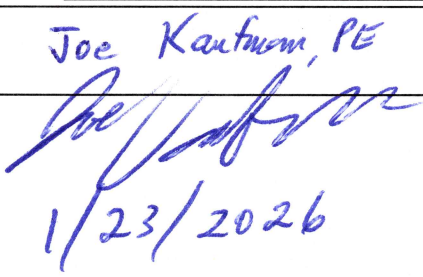 Joe Kaufman, PE
Joe Kaufman
1/23/2026